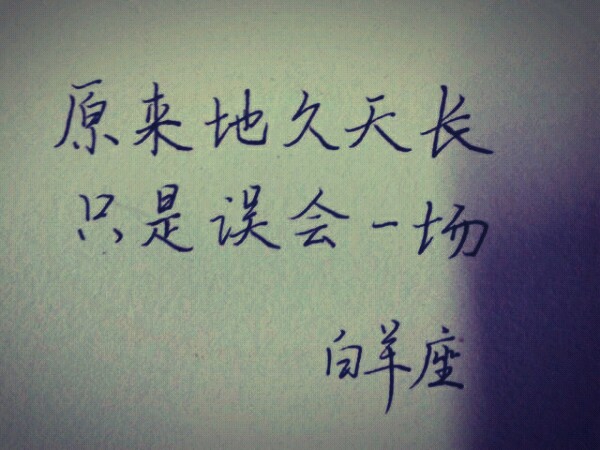 原来地久天长
只是误会一场
白羊座